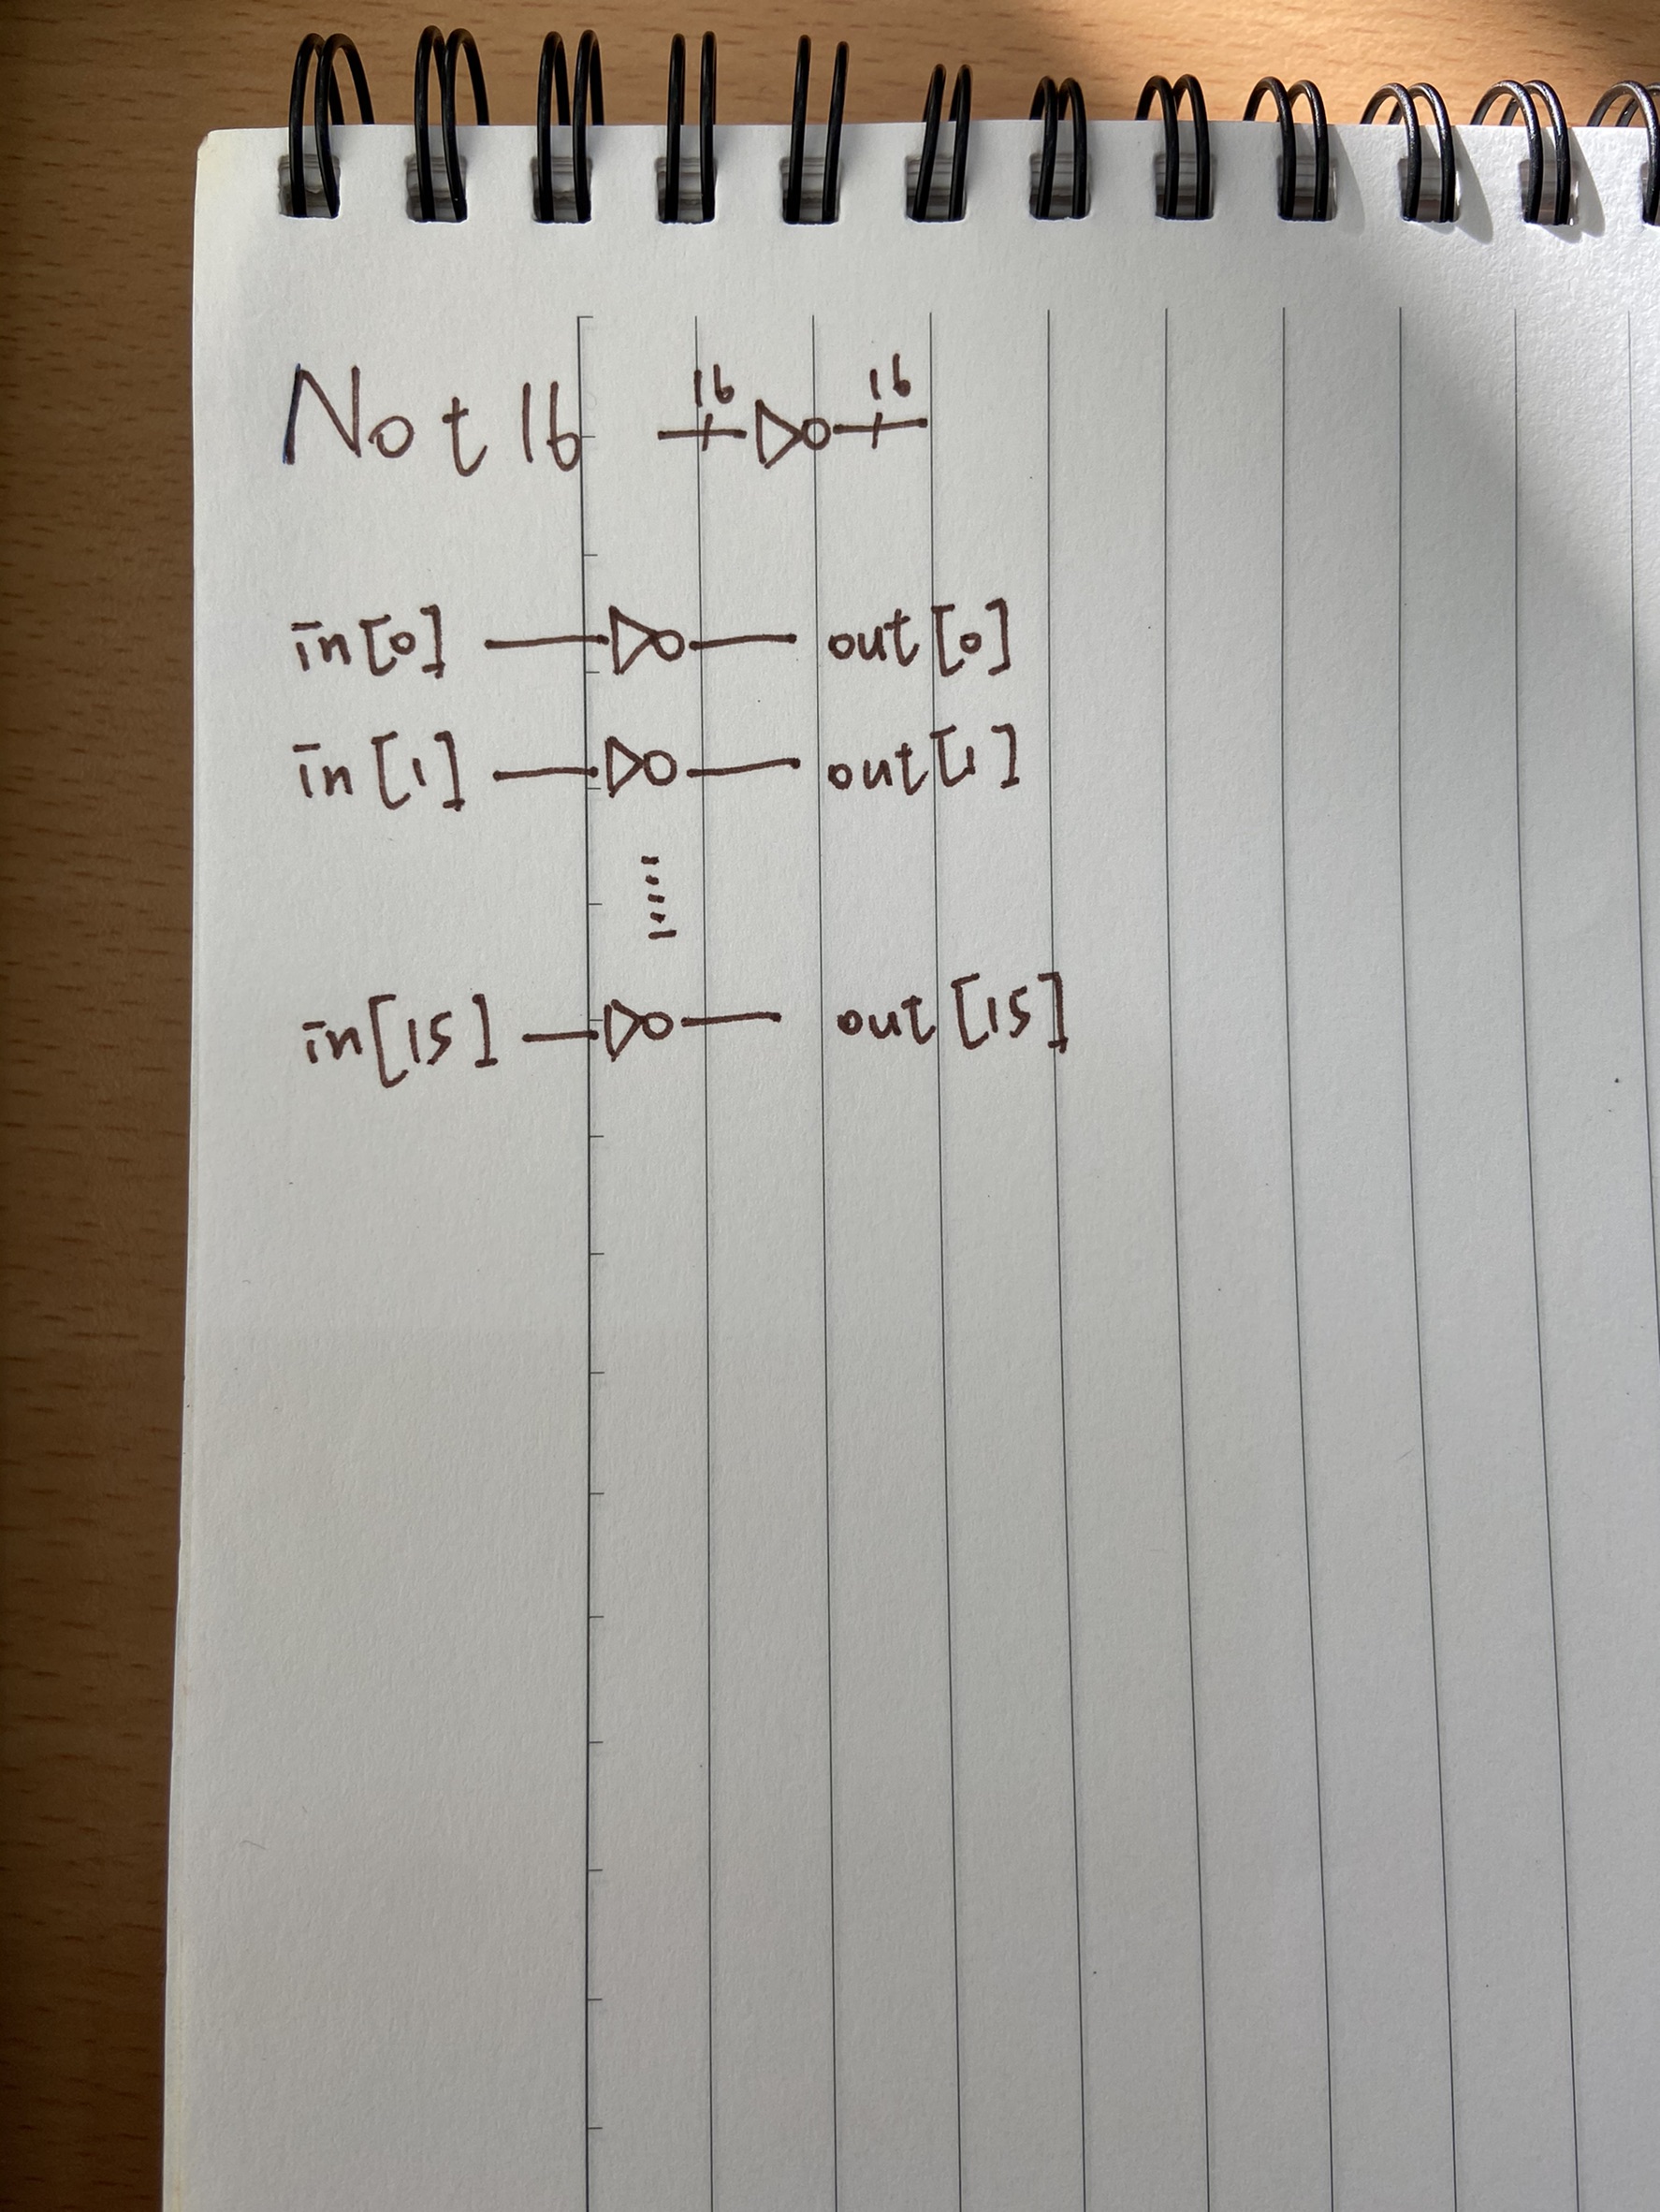 Not 16 16 16
in[0] out[0]
in[1] out[1]
in[15] out[15]